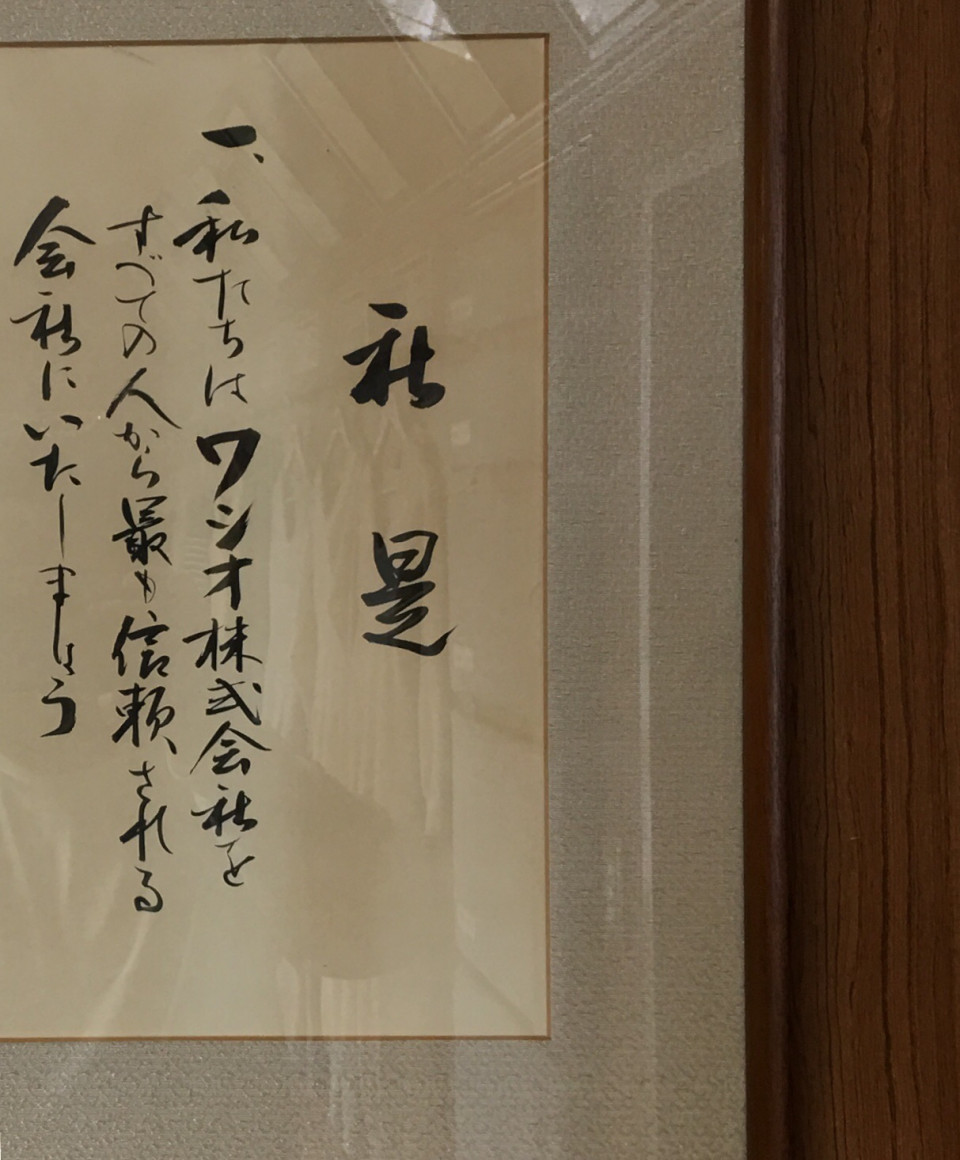 社是
一、私たちはワシオ株式会社を
すべての人から最も信頼される
会社にいたしましょう